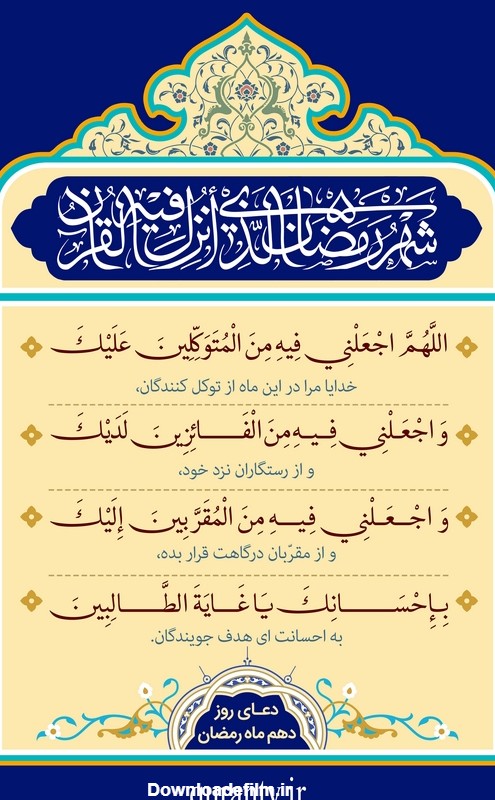 شهر رمضان الذی أنزل فیه القرآن
اللَّهُمَّ اجْعَلْنِي فِيهِ مِنَ الْمُتَوَكِّلِينَ عَلَيْكَ
خدایا مرا در این ماه از توکل کنندگان،
وَ اجْعَلْنِي فِيهِ مِنَ الْفَائِزِينَ لَدَيْكَ
و از رستگاران نزد خود،
وَ اجْعَلْنِي فِيهِ مِنَ الْمُقَرَّبِينَ إِلَيْكَ
و از مقرّبان درگاهت قرار بده،
بِإِحْسَانِكَ يَا غَايَةَ الطَّالِبِينَ
به احسانت ای هدف جویندگان.
دعای روز
دهم ماه رمضان
Downloadefilm.ir